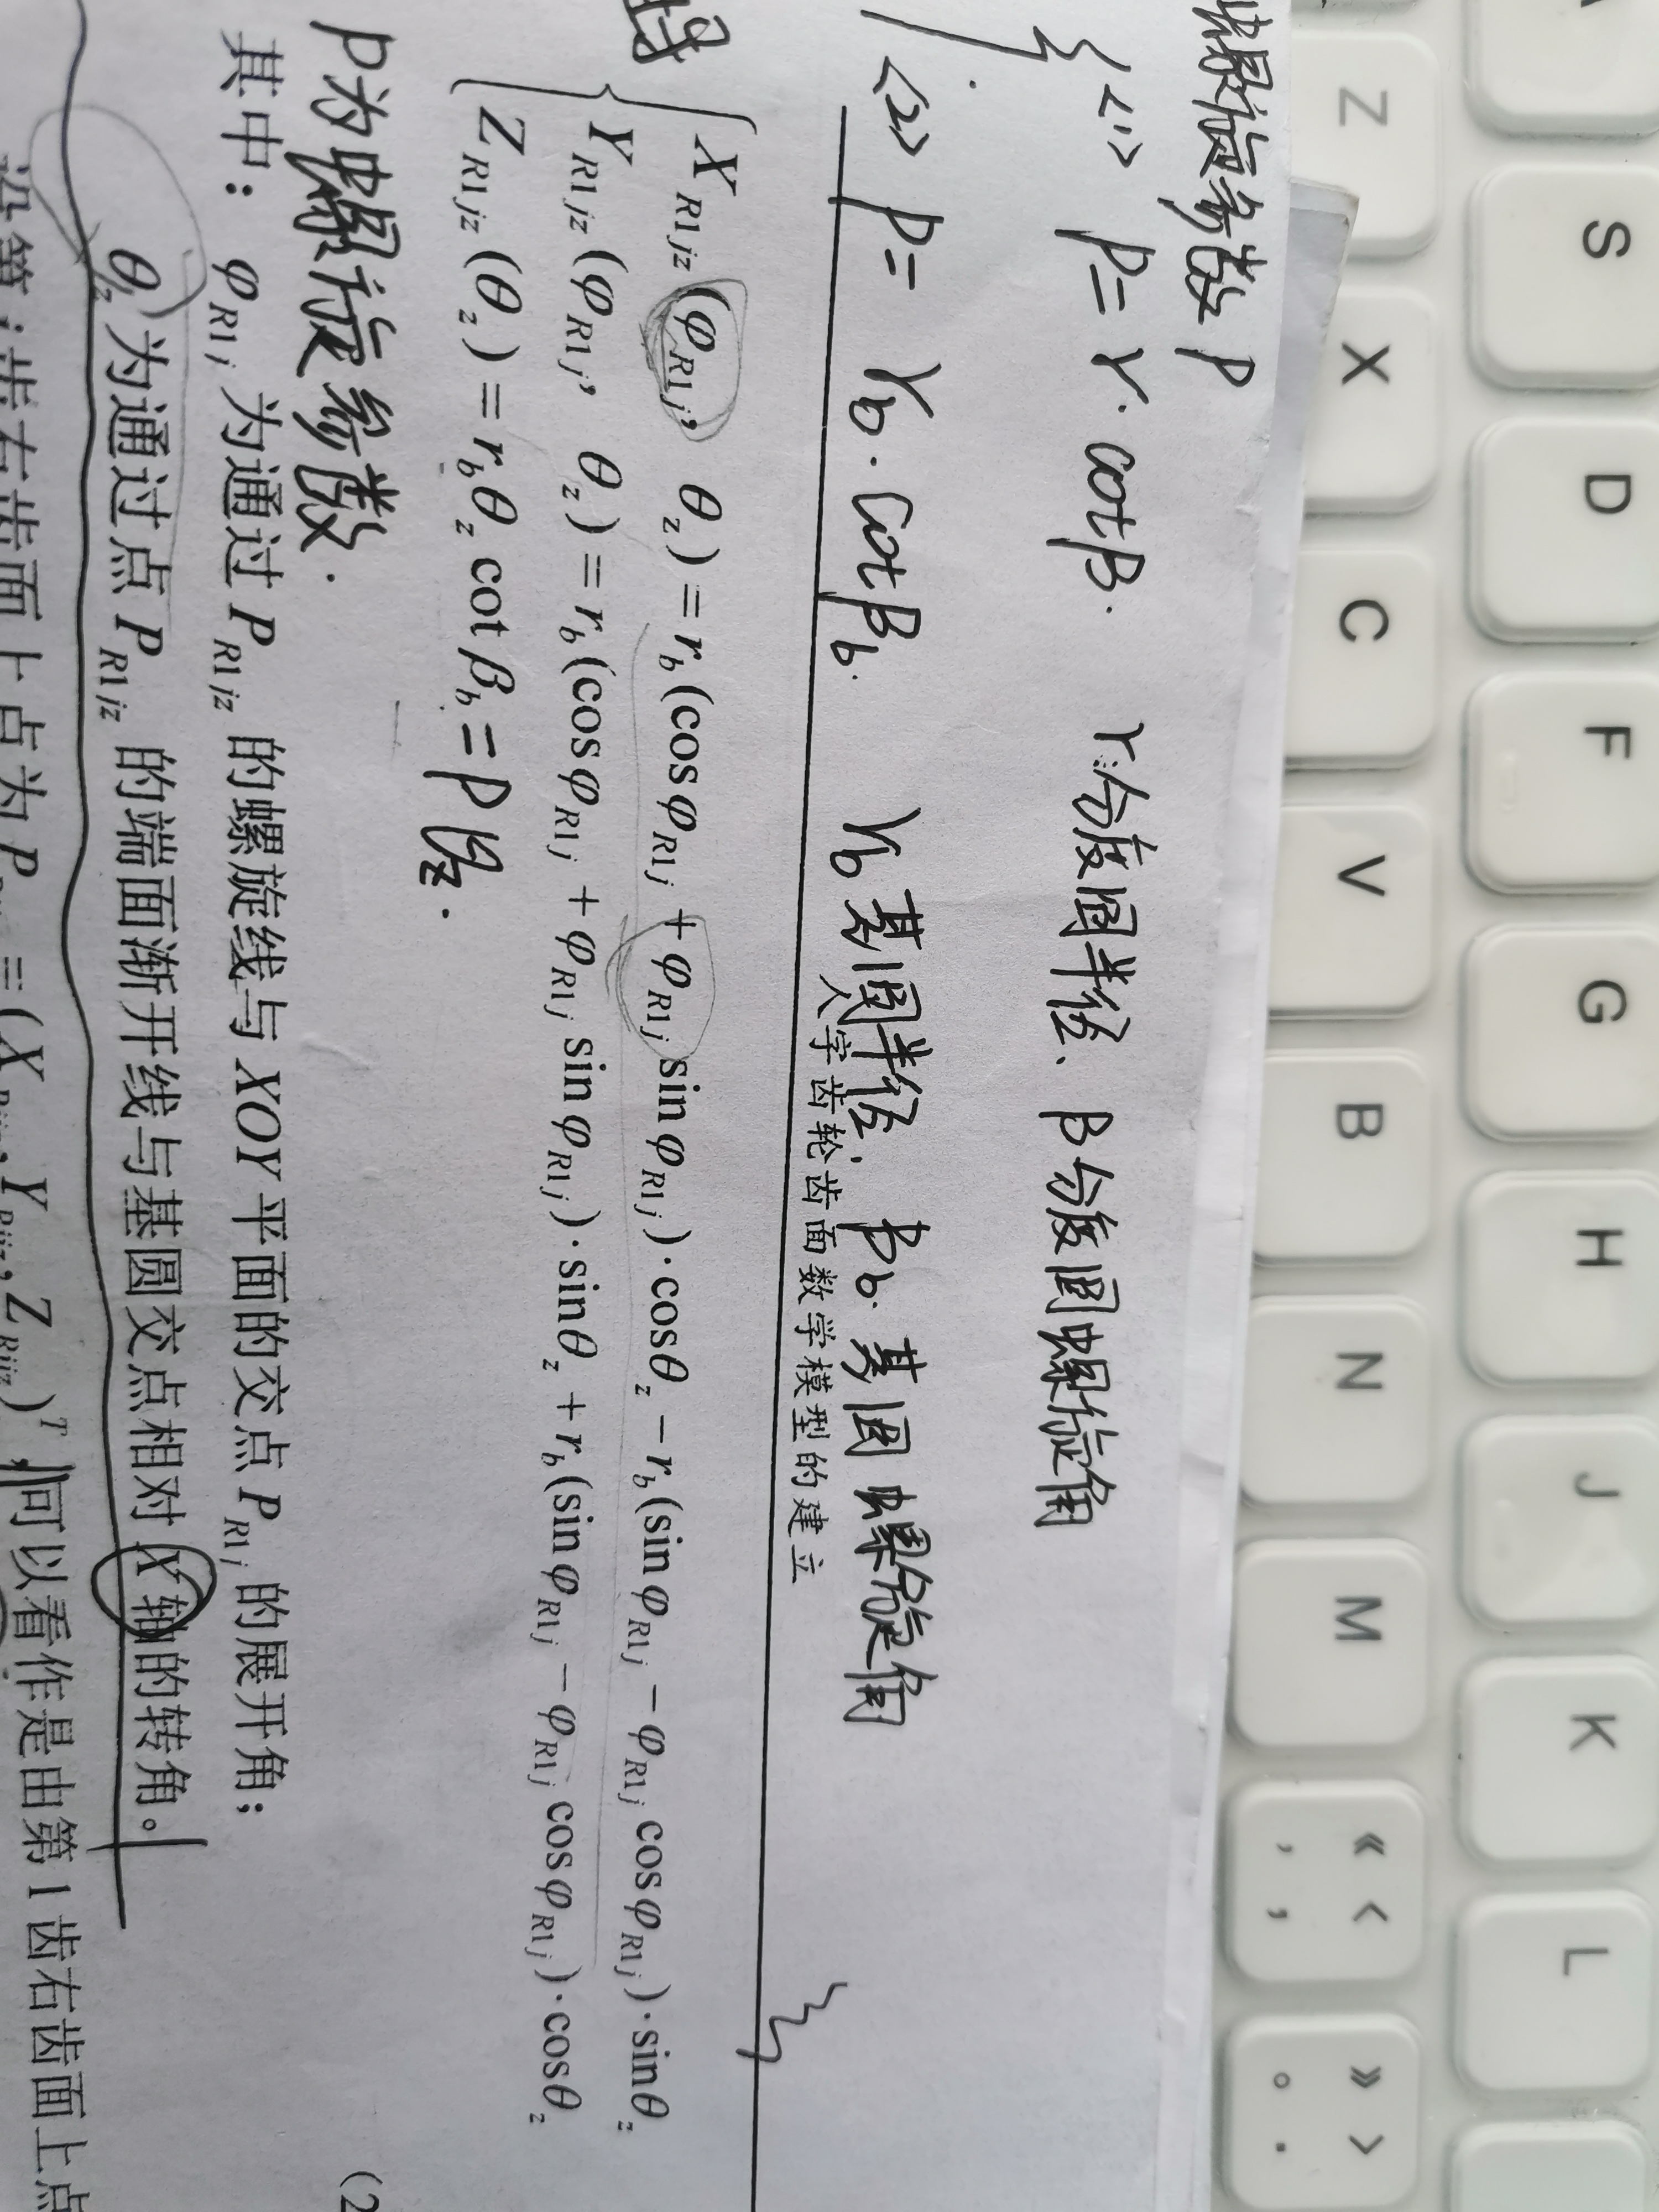 螺旋参数 P
<1> P = r·cotβ. r:分度圆半径、β分度圆螺旋角
<2> P = rb·cotβb. rb基圆半径. βb.基圆螺旋角
人字齿轮齿面数学模型的建立
X R1jz (φR1j, θz) = rb(cosφR1j + φR1j sinφR1j)·cosθz − rb(sinφR1j − φR1j cosφR1j)·sinθz
Y R1jz (φR1j, θz) = rb(cosφR1j + φR1j sinφR1j)·sinθz + rb(sinφR1j − φR1j cosφR1j)·cosθz
Z R1jz (θz) = rbθz cotβb = Pθz.
(2
P为螺旋参数.
其中：φR1j 为通过 PR1jz 的螺旋线与 XOY 平面的交点 PR1j 的展开角；
θz 为通过点 PR1jz 的端面渐开线与基圆交点相对 X 轴的转角。
设第 i 齿右齿面上点为 P = (X Rijz, Y Rijz, Z Rijz)T, 可以看作是由第 1 齿右齿面上点
Z X C V B N M « < , » > 。 .
A S D F G H J K L